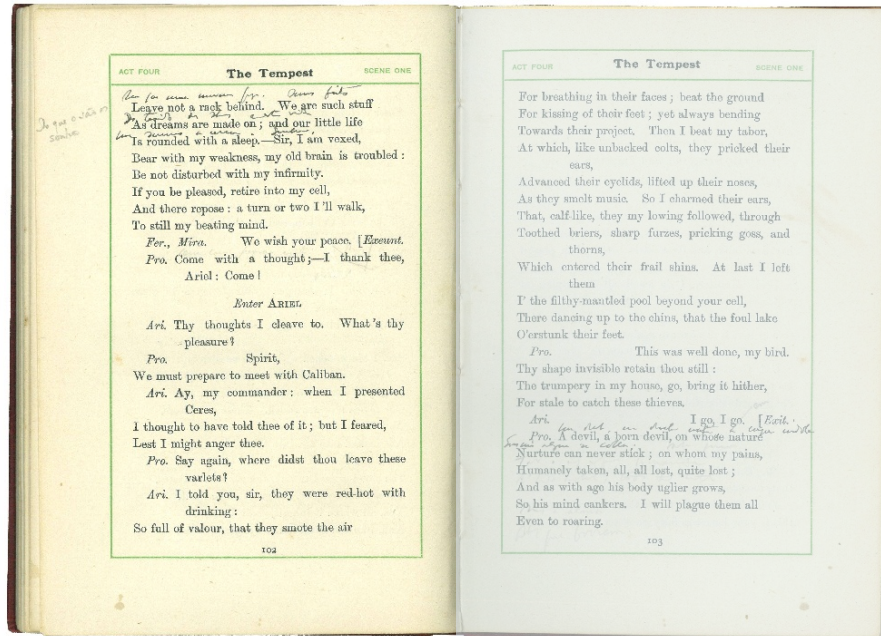 ACT FOUR The Tempest SCENE ONE
Leave not a rack behind. We are such stuff
As dreams are made on; and our little life
Is rounded with a sleep.—Sir, I am vexed,
Bear with my weakness, my old brain is troubled:
Be not disturbed with my infirmity.
If you be pleased, retire into my cell,
And there repose: a turn or two I'll walk,
To still my beating mind.
Fer., Mira. We wish your peace. [Exeunt.
Pro. Come with a thought;—I thank thee,
Ariel: Come!
Enter ARIEL
Ari. Thy thoughts I cleave to. What's thy
pleasure?
Pro. Spirit,
We must prepare to meet with Caliban.
Ari. Ay, my commander: when I presented
Ceres,
I thought to have told thee of it; but I feared,
Lest I might anger thee.
Pro. Say again, where didst thou leave these
varlets?
Ari. I told you, sir, they were red-hot with
drinking:
So full of valour, that they smote the air
102
ACT FOUR The Tempest SCENE ONE
For breathing in their faces; beat the ground
For kissing of their feet; yet always bending
Towards their project. Then I beat my tabor,
At which, like unbacked colts, they pricked their
ears,
Advanced their eyelids, lifted up their noses,
As they smelt music. So I charmed their ears,
That, calf-like, they my lowing followed, through
Toothed briers, sharp furzes, pricking goss, and
thorns,
Which entered their frail shins. At last I left
them
I' the filthy-mantled pool beyond your cell,
There dancing up to the chins, that the foul lake
O'erstunk their feet.
Pro. This was well done, my bird.
Thy shape invisible retain thou still:
The trumpery in my house, go, bring it hither,
For stale to catch these thieves.
Ari. I go, I go. [Exit.
Pro. A devil, a born devil, on whose nature
Nurture can never stick; on whom my pains,
Humanely taken, all, all lost, quite lost;
And as with age his body uglier grows,
So his mind cankers. I will plague them all
Even to roaring.
103